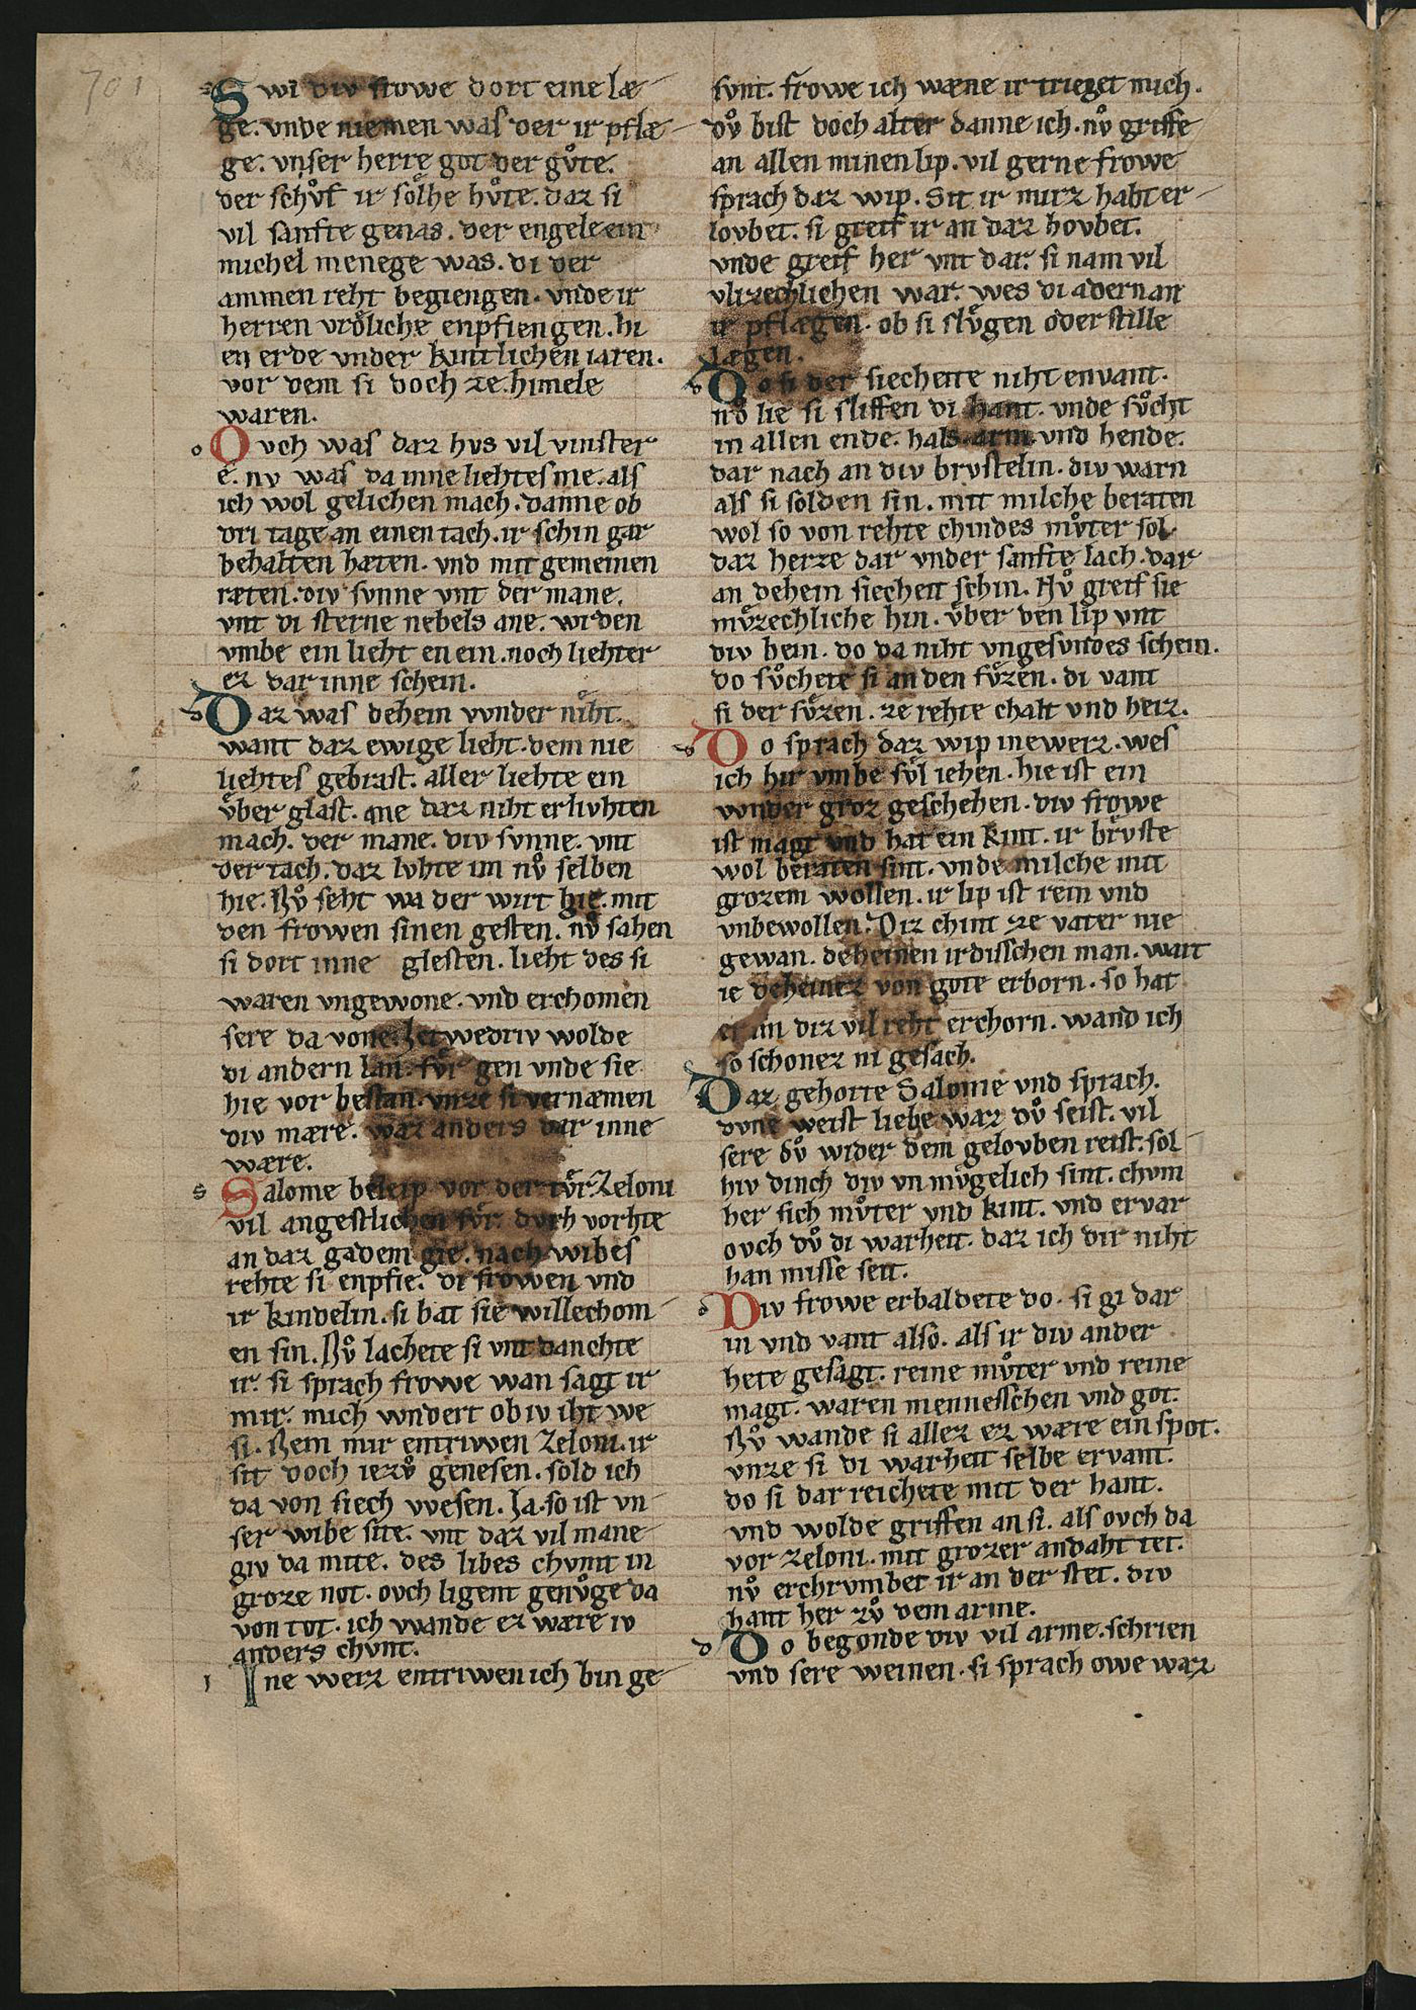 701
Swi div frowe dort eine læ
ge. vnde niemen was der ir pflæ
ge. vnser herre got der gůte.
der schůf ir sölhe hůte. daz si
vil sanfte genas. der engele ein
michel menege was. di der
ammen reht begiengen. vnde ir
herren vrőliche enpfiengen. hi
en erde vnder kintlichen iaren.
vor dem si doch ze himele
waren.
o Ovch was daz hvs vil vinster
e. nv was da inne liehtes me. als
ich wol gelichen mach. danne ob
dri tage an einen tach. ir schin gar
behalten hæten. vnd mit gemeinen
ræten. div svnne vnt der mane.
vnt di sterne nebels ane. wrden
vmbe ein lieht en ein. noch liehter
ez dar inne schein.
d Daz was dehein wnder niht.
want daz ewige lieht. dem nie
liehtes gebrast. aller liehte ein
vͤber glast. ane daz niht erlivhten
mach. der mane. div svnne. vnt
der tach. daz lvhte im nv̊ selben
hie. Nv̊ seht wa der wirt hie. mit
den frowen sinen gesten. nv̊ sahen
si dort inne glesten. lieht des si
waren vngewone. vnd erchomen
sere da vone. Ietwedriv wolde
di andern lan. fv̊r gen vnde sie
hie vor bestan. vnze si vernæmen
div mære. waz anders dar inne
wære.
s Salome beleip vor der tv̊r. Zeloni
vil angestlichen fv̊r. dvrh vorhte
an daz gadem gie. nach wibes
rehte si enpfie. di frowen vnd
ir kindelin. si bat sie willechom
en sin. Nv̊ lachete si vnt danchte
ir. si sprach frowe wan sagt ir
mir. mich wndert ob iv iht we
si. Nem mir entriwen Zeloni. ir
sit doch iezv̊ genesen. sold ich
da von siech wesen. Ja. so ist vn
ser wibe site. vnt daz vil mane
giv da mite. des libes chvmt in
groze not. ovch ligent genv̊ge da
von tot. ich wande ez wære iv
anders chvnt.
i Ine weiz entriwen ich bin ge
svnt. frowe ich wæne ir trieget mich.
dv̊ bist doch alter danne ich. nv̊ griffe
an allen minen lip. vil gerne frowe
sprach daz wip. Sit ir mirz habt er
lovbet. si greif ir an daz hovbet.
vnde greif her vnt dar. si nam vil
vlizechlichen war. wes di adern an
ir pflægen. ob si slv̊gen oder stille
lægen.
d Do si der siecheite niht envant.
nv̊ lie si sliffen di hant. vnde sv̊cht
in allen ende. hals arm vnd hende.
dar nach an div brvstelin. div warn
als si solden sin. mit milche beraten
wol so von rehte chindes mv̊ter sol.
daz herze dar vnder sanfte lach. dar
an dehein siecheit schin. Nv̊ greif sie
mv̊zechliche hin. vͤber den lip vnt
div bein. do da niht vngesvndes schein.
do sv̊chete si an den fv̊zen. di vant
si der sv̊zen. ze rehte chalt vnd heiz.
d Do sprach daz wip inewerz. wes
ich hir vmbe sv̊l iehen. hie ist ein
wnder groz geschehen. div frowe
ist magt vnd hat ein kint. ir brv̊ste
wol beraten sint. vnde milche mit
grozem wollen. ir lip ist rein vnd
vnbewollen. Diz chint ze vater nie
gewan. deheinen irdisschen man. wart
ie deheinez von gote erborn. so hat
er im diz vil reht erchorn. wand ich
so schonez ni gesach.
Daz gehorte Salome vnd sprach.
dvne weist liebe waz dv̊ seist. vil
sere dv̊ wider dem gelovben reist. sol
hiv dinch div vn mv̊gelich sint. chvm
her sich mv̊ter vnd kint. vnd ervar
ovch dv̊ di warheit. daz ich dir niht
han misse seit.
d Div frowe erbaldete do. si gi dar
in vnd vant also. als ir div ander
hete gesagt. reine mv̊ter vnd reine
magt. waren mennesschen vnd got.
Nv̊ wande si allez ez wære ein spot.
vnze si di warheit selbe ervant.
do si dar reichete mit der hant.
vnd wolde griffen an si. als ovch da
vor Zeloni. mit grozer andaht tet.
nv̊ erchrvmbet ir an der stet. div
hant her zv̊ dem arme.
d Do begonde div vil arme. schrien
vnd sere weinen. si sprach owe waz